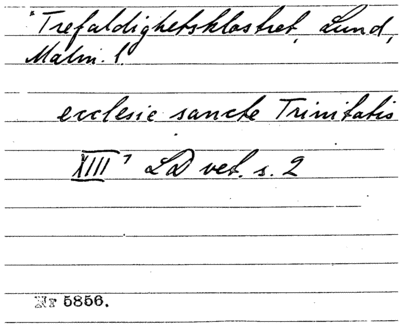 "Trefaldighetsklostret, Lund,
Malm. l.
ecclesie sancte Trinitatis
XIII" LD vet. s. 2
Nr 5856.